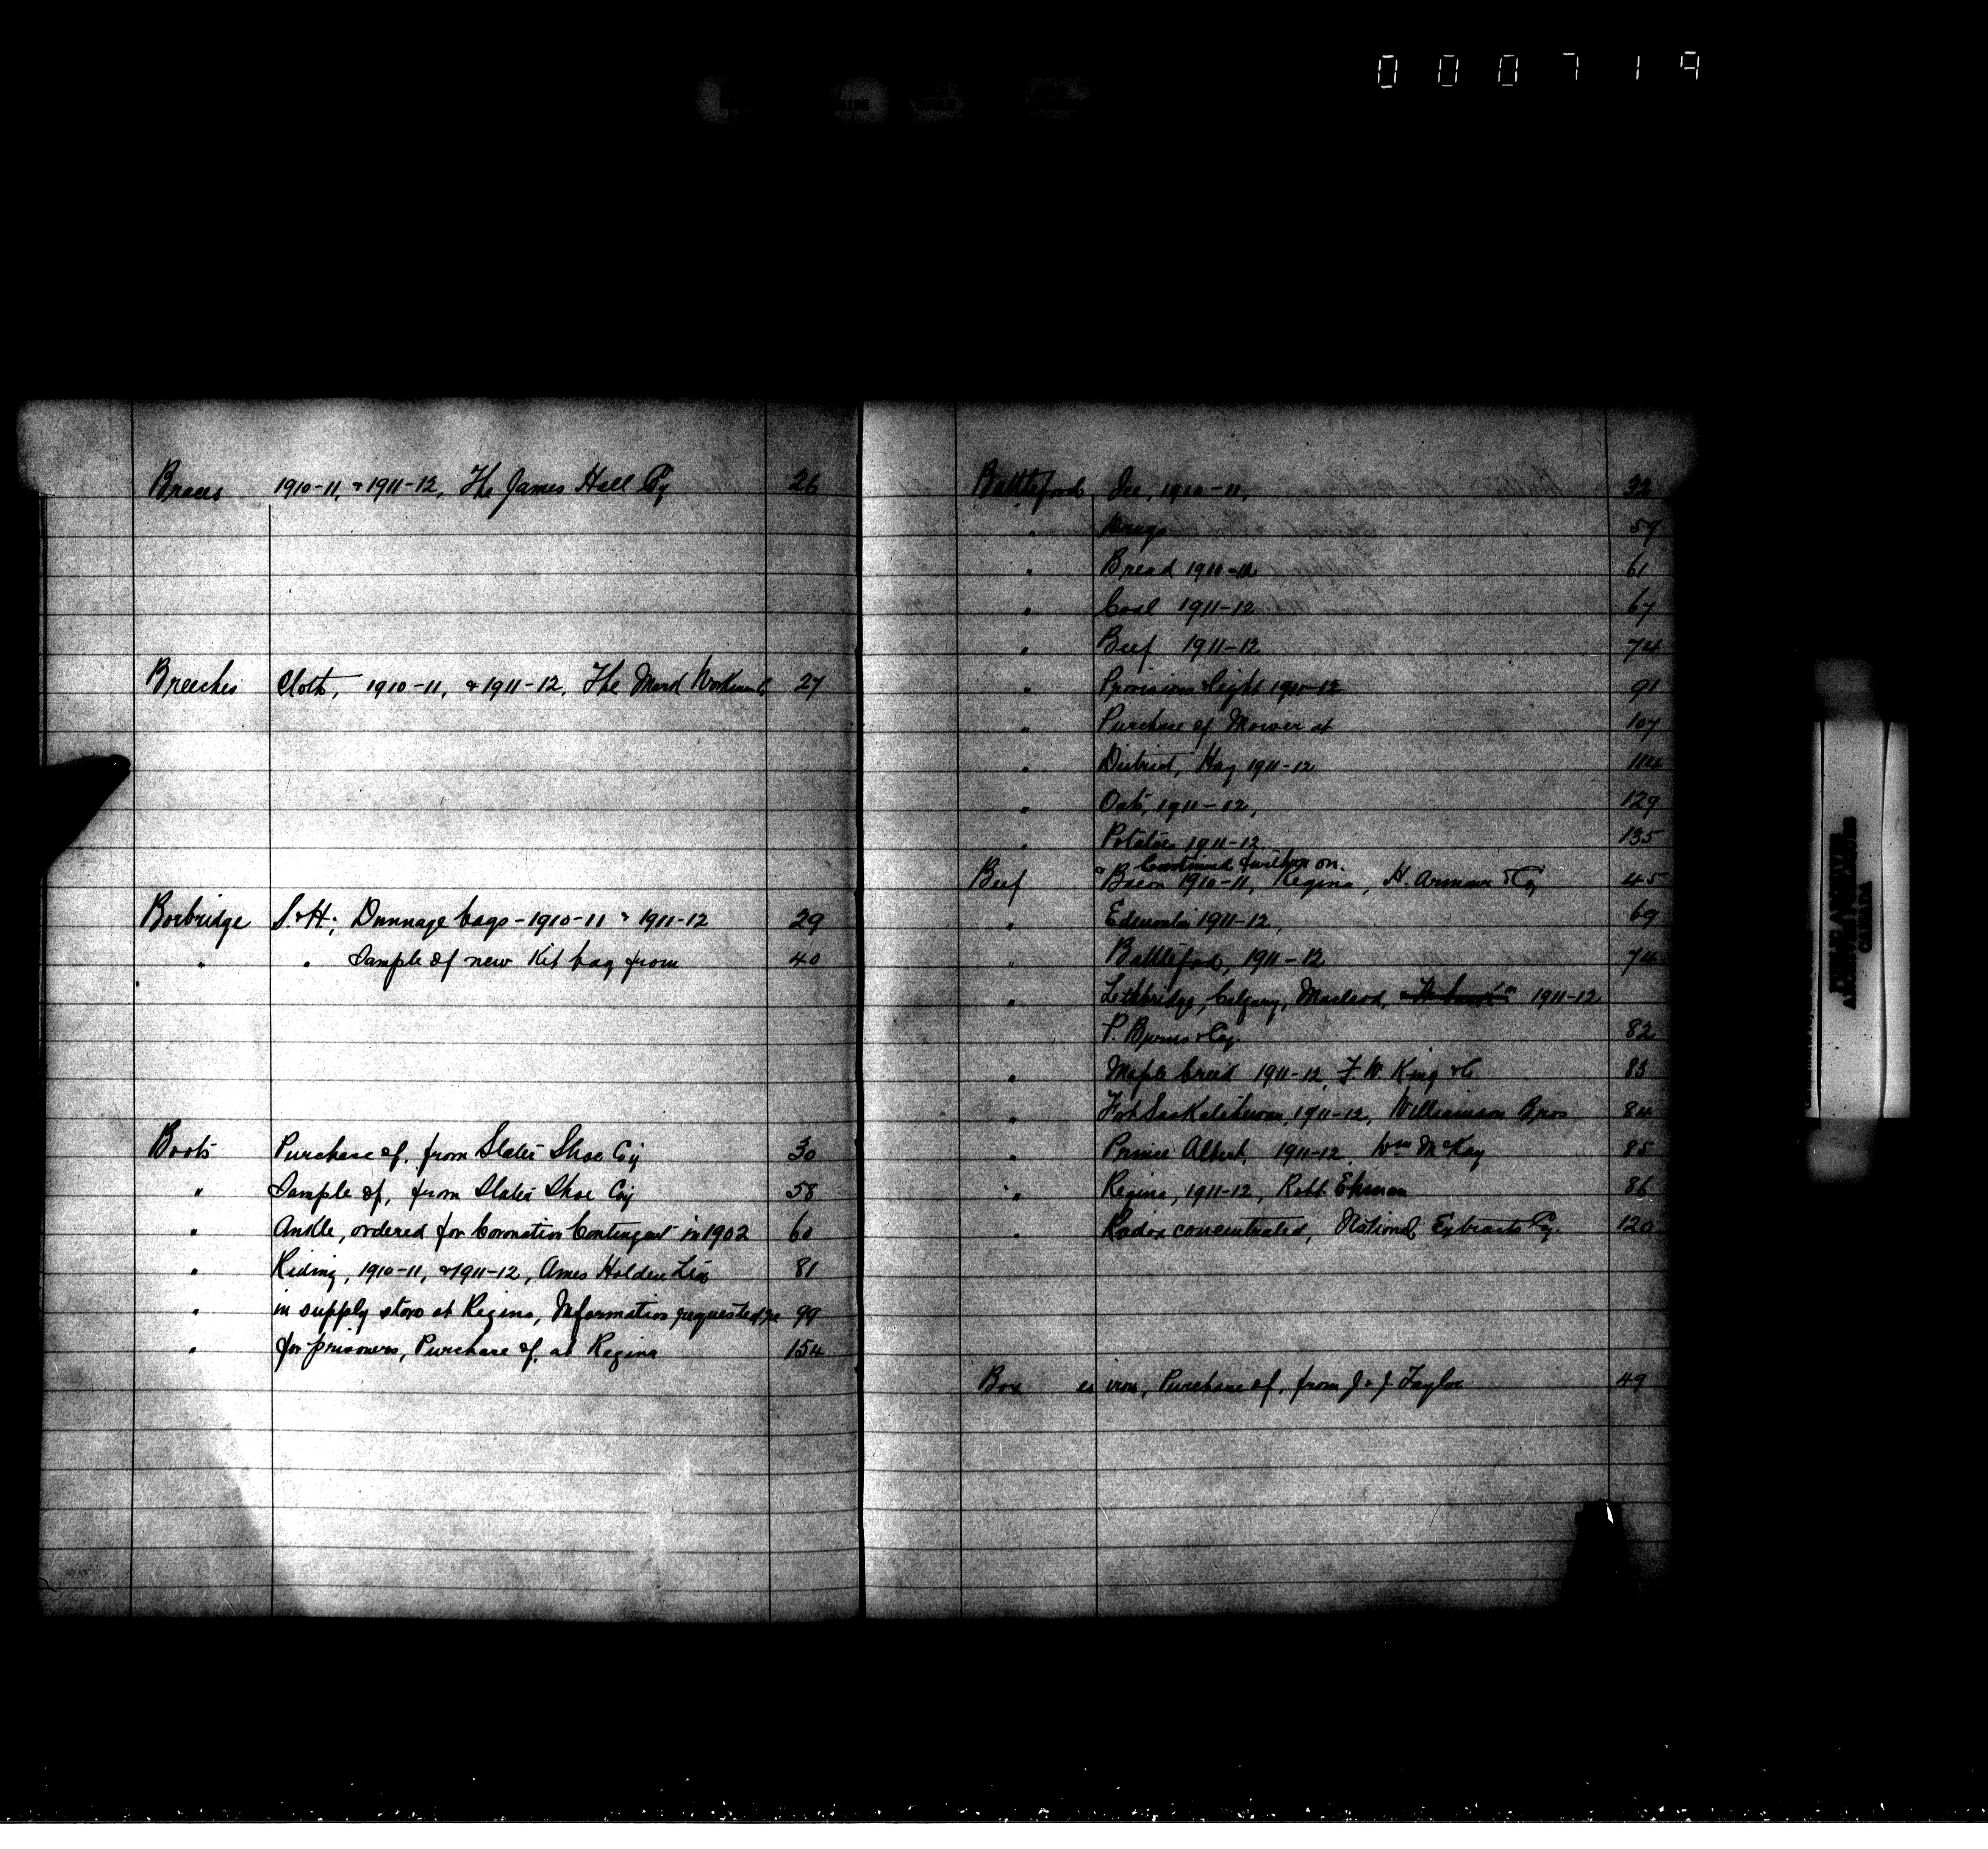 000719
Braces 1910-11, & 1911-12, The James Hall Cy 26
Breeches Cloth, 1910-11, & 1911-12, The Mark Workman Co 27
Borbridge S. & H; Dunnage bags - 1910-11 & 1911-12 29
" " Sample of new Kit bag from 40
Boots Purchase of, from Slater Shoe Coy 30
" Sample of, from Slater Shoe Coy 58
" Ankle, ordered for Coronation Contingent in 1902 60
" Riding, 1910-11, & 1911-12, Ames Holden Ltd 81
" in supply store at Regina, Information requested re 99
" for prisoners, Purchase of, at Regina 154
Battleford Ice, 1910-11, 32
" Drugs 57
" Bread 1911-12 61
" Coal 1911-12 67
" Beef 1911-12 74
" Provisions & light 1911-12 91
" Purchase of Mower at 107
" District, Hay 1911-12 114
" Oats, 1911-12, 129
" Potatoes 1911-12 135
" Continued further on.
Beef Bacon 1910-11, Regina, H. Armour & Cy 45
" Edmonton 1911-12, 69
" Battleford, 1911-12 74
" Lethbridge, Calgary, Macleod, 1911-12
P. Burns & Coy. 82
" Maple Creek 1911-12, F. W. King & Co. 83
" Fort Saskatchewan, 1911-12, Williamson Bros 84
" Prince Albert, 1911-12, Wm McKay 85
" Regina, 1911-12, Robt Ehman 86
" Radox concentrated, National Extracts Cy. 120
Box es iron, Purchase of, from J. & J. Taylor 49
PUBLIC ARCHIVES
ARCHIVES PUBLIQUES
CANADA